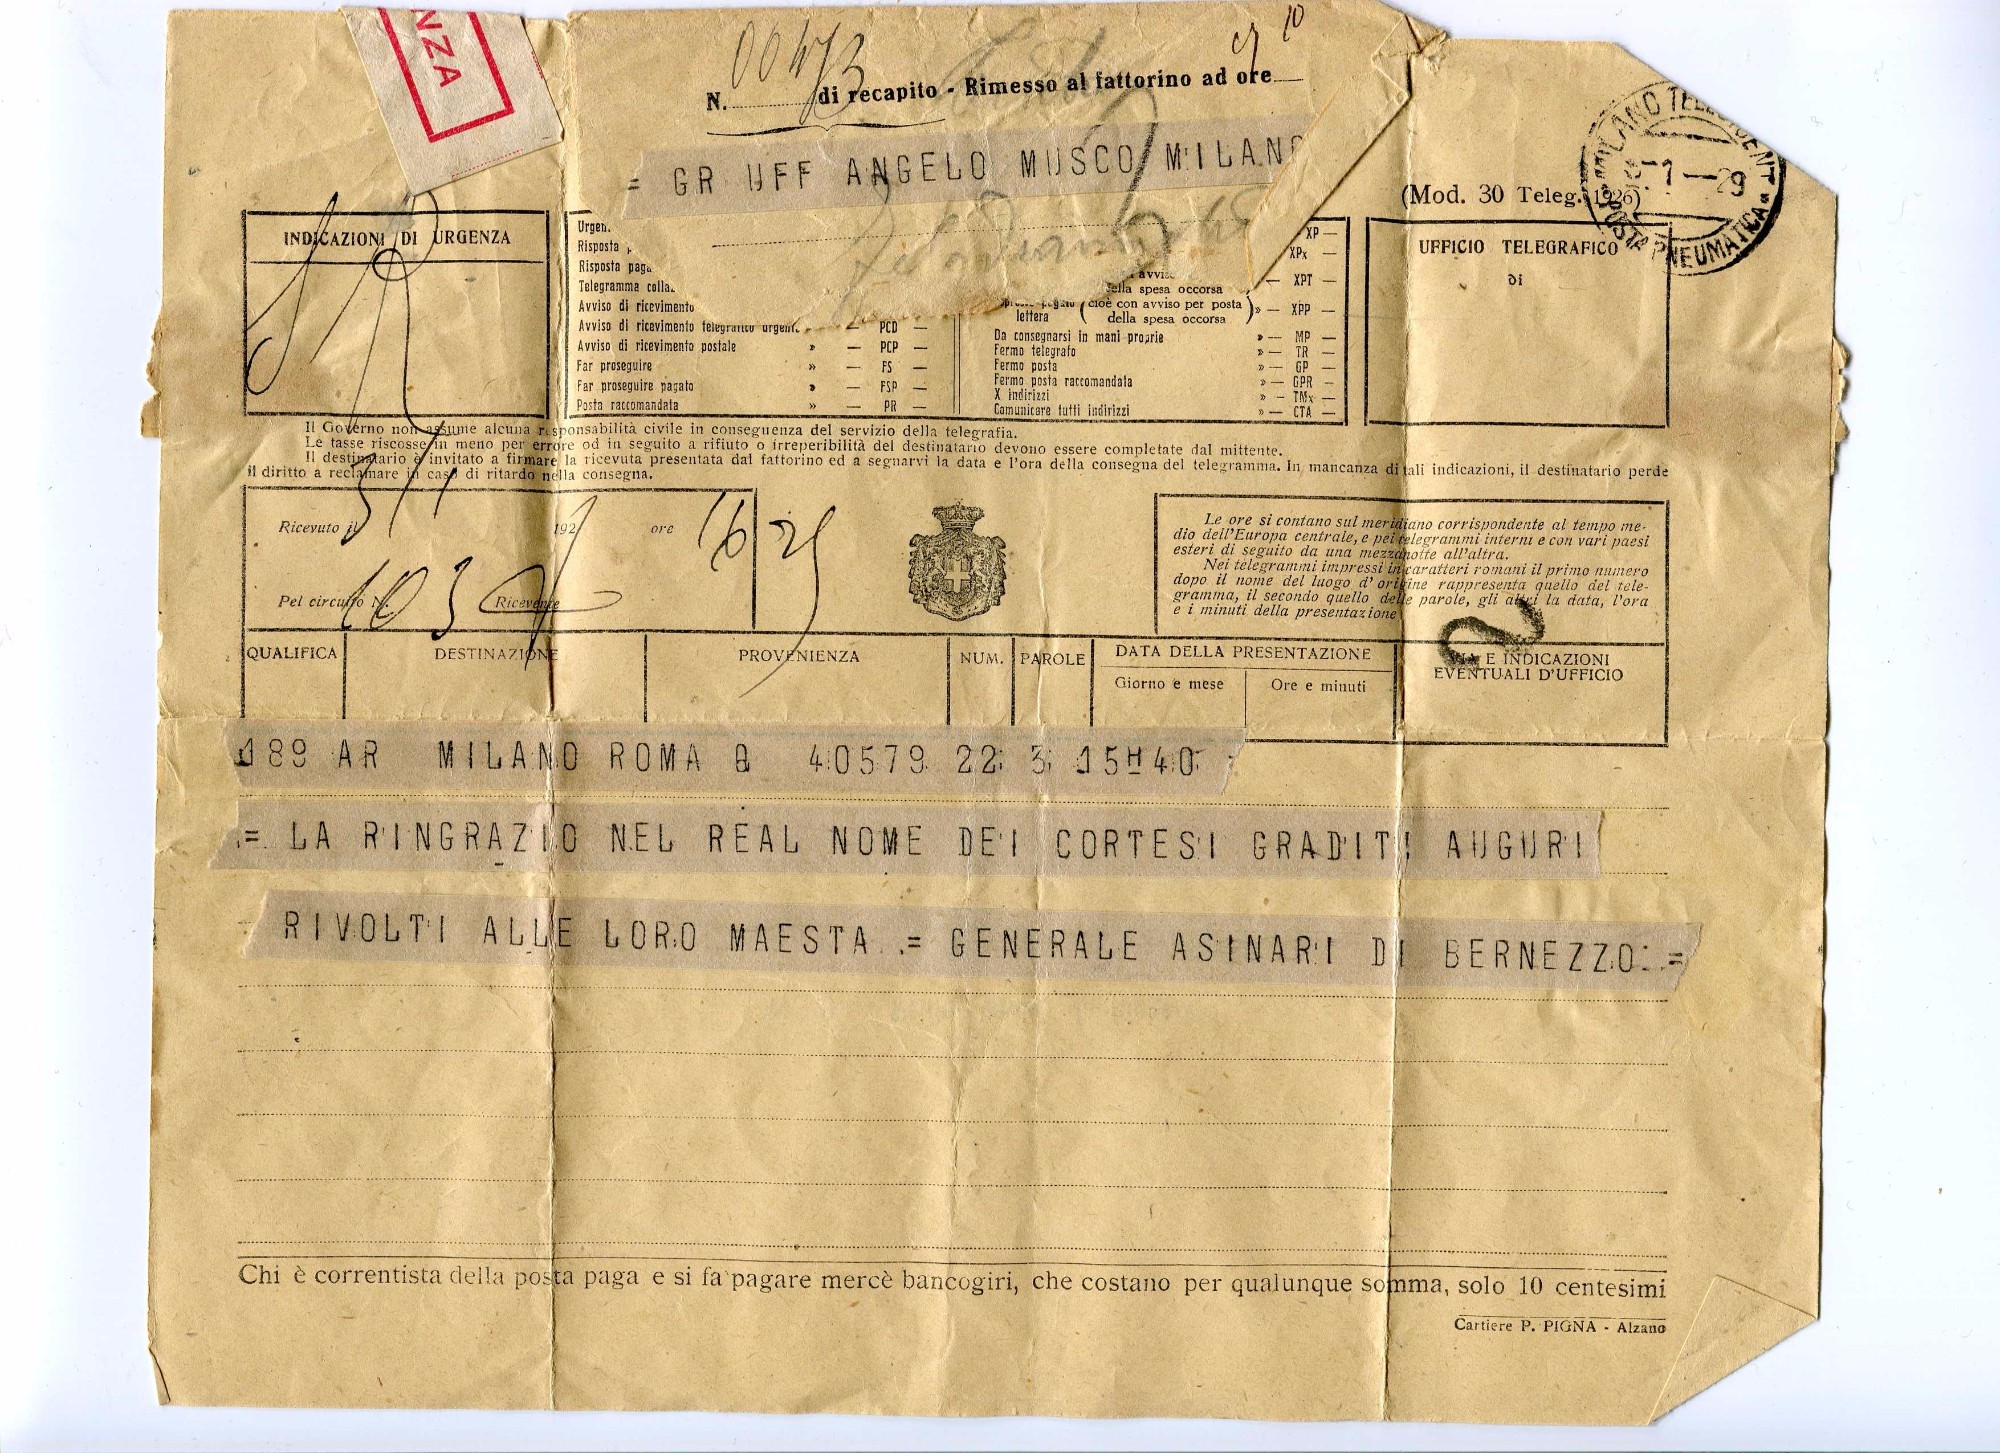 NZA
00473
10
N. di recapito - Rimesso al fattorino ad ore
= GR UFF ANGELO MUSCO MILANO
(Mod. 30 Teleg. 1926)
MILANO TELEG
1-29
POSTA PNEUMATICA
INDICAZIONI DI URGENZA
Urgen.
Risposta
Risposta paga
Telegramma colla
Avviso di ricevimento
Avviso di ricevimento telegrafico urgen. — PCD —
Avviso di ricevimento postale » — PCP —
Far proseguire » — FS —
Far proseguire pagato » — FSP —
Posta raccomandata » — PR —
XP —
XPx —
avvis
della spesa occorsa — XPT —
lettera (cioè con avviso per posta
della spesa occorsa) » — XPP —
Da consegnarsi in mani proprie » — MP —
Fermo telegrafo » — TR —
Fermo posta » — GP —
Fermo posta raccomandata » — GPR —
X indirizzi » — TMx —
Comunicare tutti indirizzi » — CTA —
UFFICIO TELEGRAFICO
di
Il Governo non assume alcuna responsabilità civile in conseguenza del servizio della telegrafia.
Le tasse riscosse in meno per errore od in seguito a rifiuto o irreperibilità del destinatario devono essere completate dal mittente.
Il destinatario è invitato a firmare la ricevuta presentata dal fattorino ed a segnarvi la data e l'ora della consegna del telegramma. In mancanza di tali indicazioni, il destinatario perde
il diritto a reclamare in caso di ritardo nella consegna.
Ricevuto il 3/1 192 ore 16/25
Pel circuito N. 103 Ricevente
Le ore si contano sul meridiano corrispondente al tempo me-
dio dell'Europa centrale, e pei telegrammi interni e con vari paesi
esteri di seguito da una mezzanotte all'altra.
Nei telegrammi impressi in caratteri romani il primo numero
dopo il nome del luogo d'origine rappresenta quello del tele-
gramma, il secondo quello delle parole, gli altri la data, l'ora
e i minuti della presentazione
2
QUALIFICA DESTINAZIONE PROVENIENZA NUM. PAROLE DATA DELLA PRESENTAZIONE VIA E INDICAZIONI
EVENTUALI D'UFFICIO
Giorno e mese Ore e minuti
189 AR MILANO ROMA Q 40579 22 3 15H40 =
= LA RINGRAZIO NEL REAL NOME DEI CORTESI GRADITI AUGURI
RIVOLTI ALLE LORO MAESTA .= GENERALE ASINARI DI BERNEZZO .=
Chi è correntista della posta paga e si fa pagare mercè bancogiri, che costano per qualunque somma, solo 10 centesimi
Cartiere P. PIGNA - Alzano